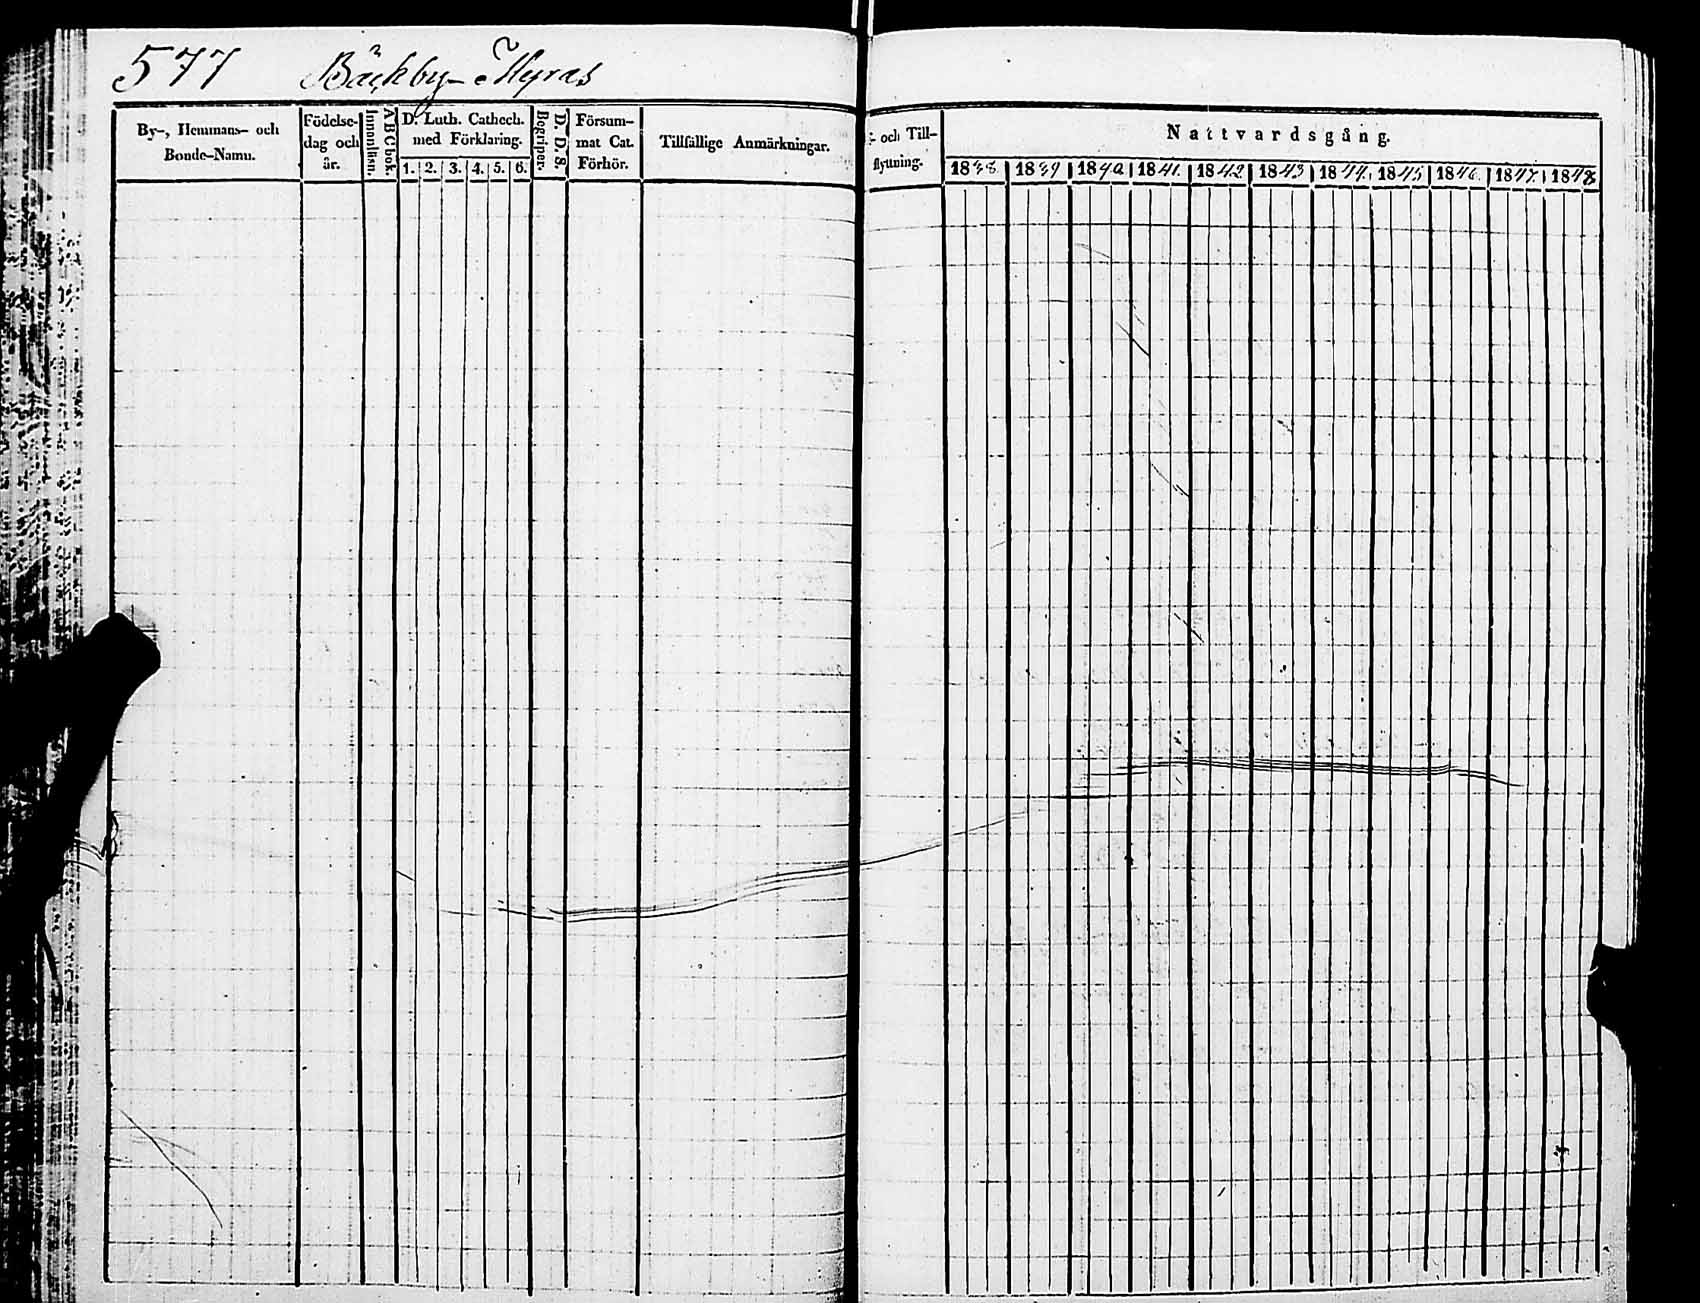 577 Bäckby-Myras
By-, Hemmans- och
Bonde-Namn.
Födelse-
dag och
år.
Innanläsn.
ABC bok.
D. Luth. Cathech.
med Förklaring.
1. 2. 3. 4. 5. 6.
Begriper.
D. D. S.
Försum-
mat Cat.
Förhör.
Tillfällige Anmärkningar.
- och Till-
flyttning.
Nattvardsgång.
1838. 1839 1840 1841. 1842 1843 1844. 1845 1846. 1847. 1848